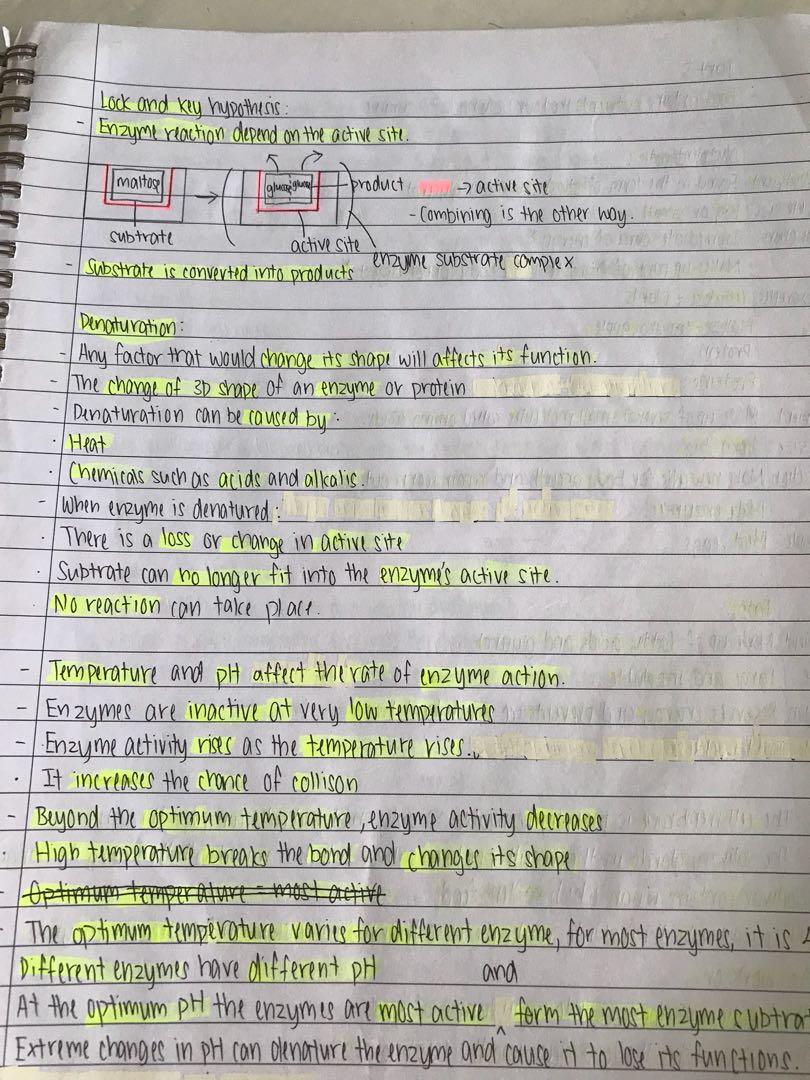 Lock and key hypothesis:
- Enzyme reaction depend on the active site.
maltose
glucose glucose
product
→ active site
- Combining is the other way.
substrate
active site
enzyme substrate complex
- Substrate is converted into products
Denaturation:
- Any factor that would change its shape will affects its function.
- The change of 3D shape of an enzyme or protein
- Denaturation can be caused by:
· Heat
· Chemicals such as acids and alkalis.
- When enzyme is denatured:
· There is a loss or change in active site
· Subtrate can no longer fit into the enzyme's active site.
· No reaction can take place.
- Temperature and pH affect the rate of enzyme action.
- Enzymes are inactive at very low temperatures
- Enzyme activity rises as the temperature rises.
· It increases the chance of collison
- Beyond the optimum temperature, enzyme activity decreases
· High temperature breaks the bond and changes its shape
- Optimum temperature = most active
- The optimum temperature varies for different enzyme, for most enzymes, it is
Different enzymes have different pH
At the optimum pH the enzymes are most active and form the most enzyme
Extreme changes in pH can denature the enzyme and cause it to lose its functions.